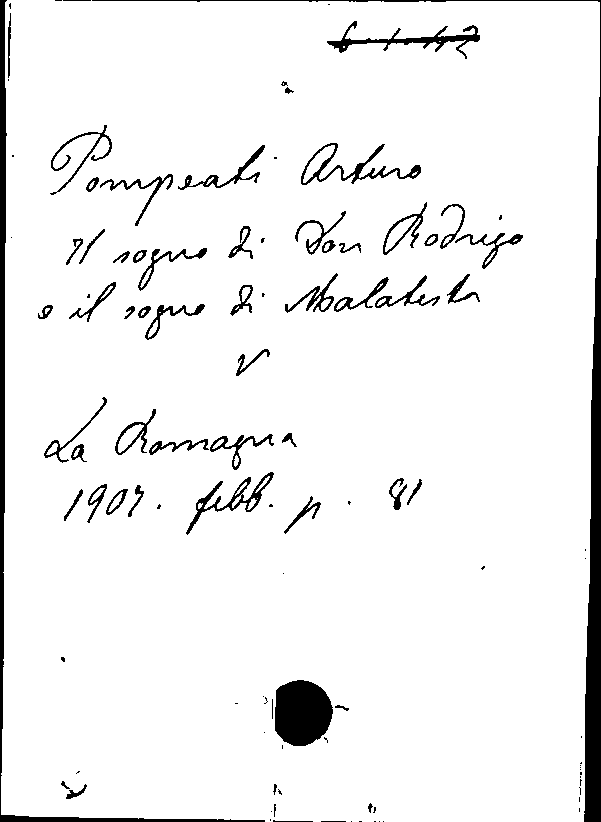 6.1.42
Pompeati Arturo
Il sogno di Don Rodrigo
e il sogno di Malatesta
V
La Romagna
1907. febb. p. 81